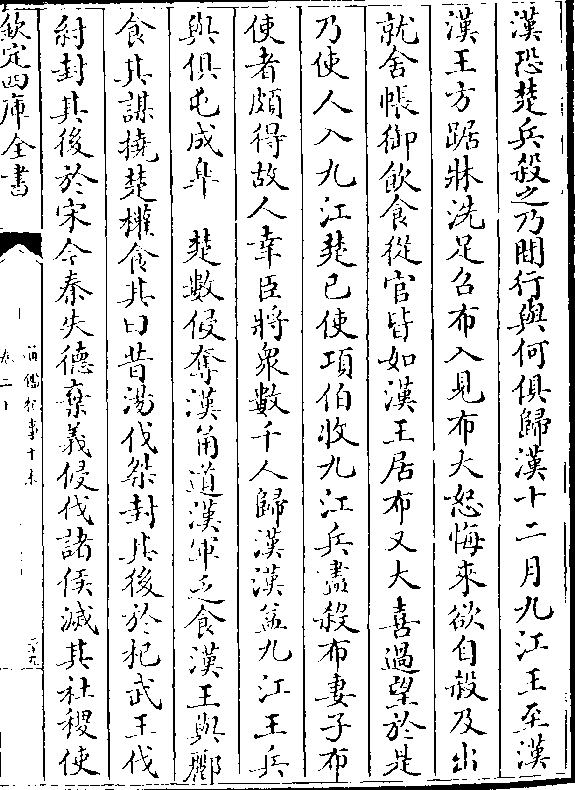 漢恐楚兵殺之乃間行與何俱歸漢十二月九江王至漢
漢王方踞牀洗足召布入見布大怒悔來欲自殺及出
就舍帳御飲食從官皆如漢王居布又大喜過望於是
乃使人入九江楚已使項伯收九江兵盡殺布妻子布
使者頗得故人幸臣將衆數千人歸漢漢益九江王兵
與俱屯成臯 楚數侵奪漢甬道漢軍乏食漢王與酈
食其謀撓楚權食其曰昔湯伐桀封其後於杞武王伐
紂封其後於宋今秦失德棄義侵伐諸侯滅其社稷使
欽定四庫全書